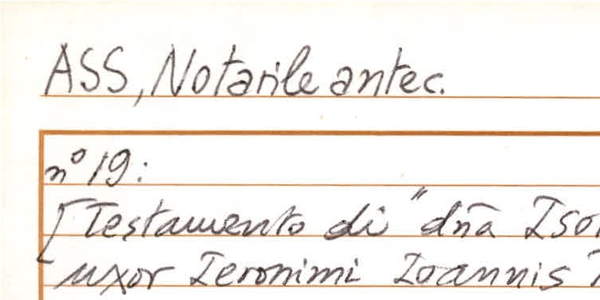 ASS, Notarile antec.
n° 19:
[Testamento di "dña
uxor Ieronimi Ioannis